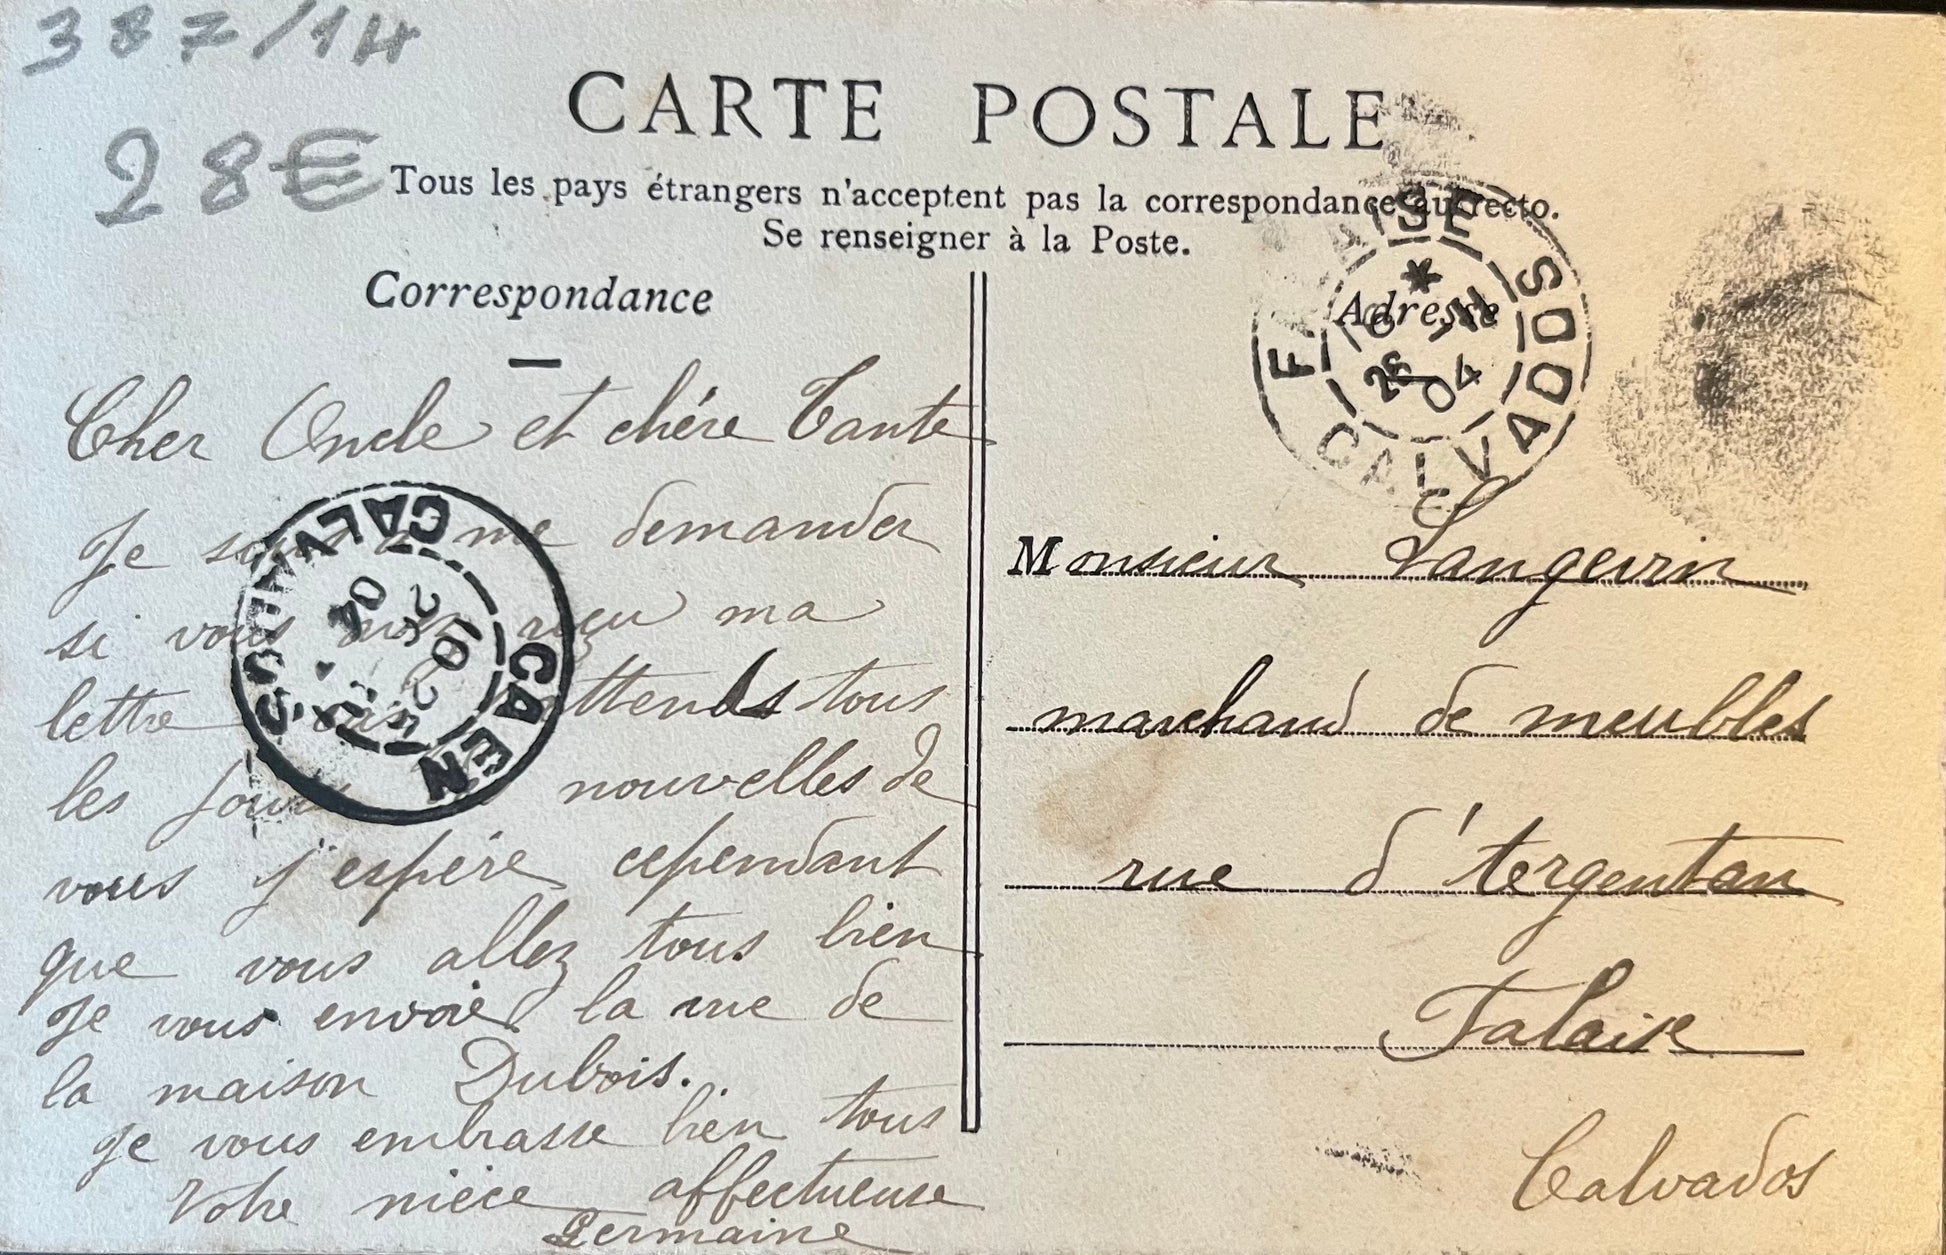 387/14
28€
CARTE POSTALE
Tous les pays étrangers n'acceptent pas la correspondance au recto.
Se renseigner à la Poste.
Correspondance
Cher Oncle et chère Tante
Je me demander
si vous avez reçu ma
lettre attends tous
les jours nouvelles de
vous j'espère cependant
que vous allez tous bien
Je vous envoie la vue de
la maison Dubois.
Je vous embrasse bien tous
Votre nièce affectueuse
Germaine
CAEN CALVADOS
10
25
04
Adresse
FALAISE CALVADOS
26
04
Monsieur Langevin
marchand de meubles
rue d'tergentan
Falaise
Calvados